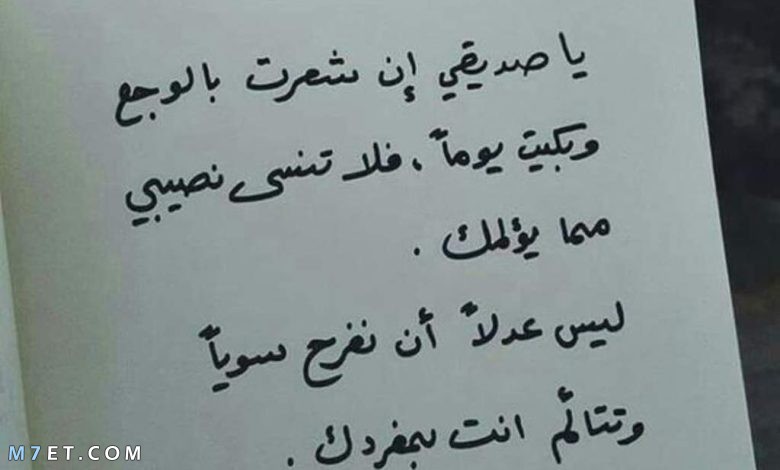 يا صديقي إن شعرت بالوجع
وبكيت يوماً ، فلا تنسى نصيبي
مما يؤلمك .
ليس عدلاً أن نفرح سوياً
وتتألّم انت بمفردك .
M7ET.COM